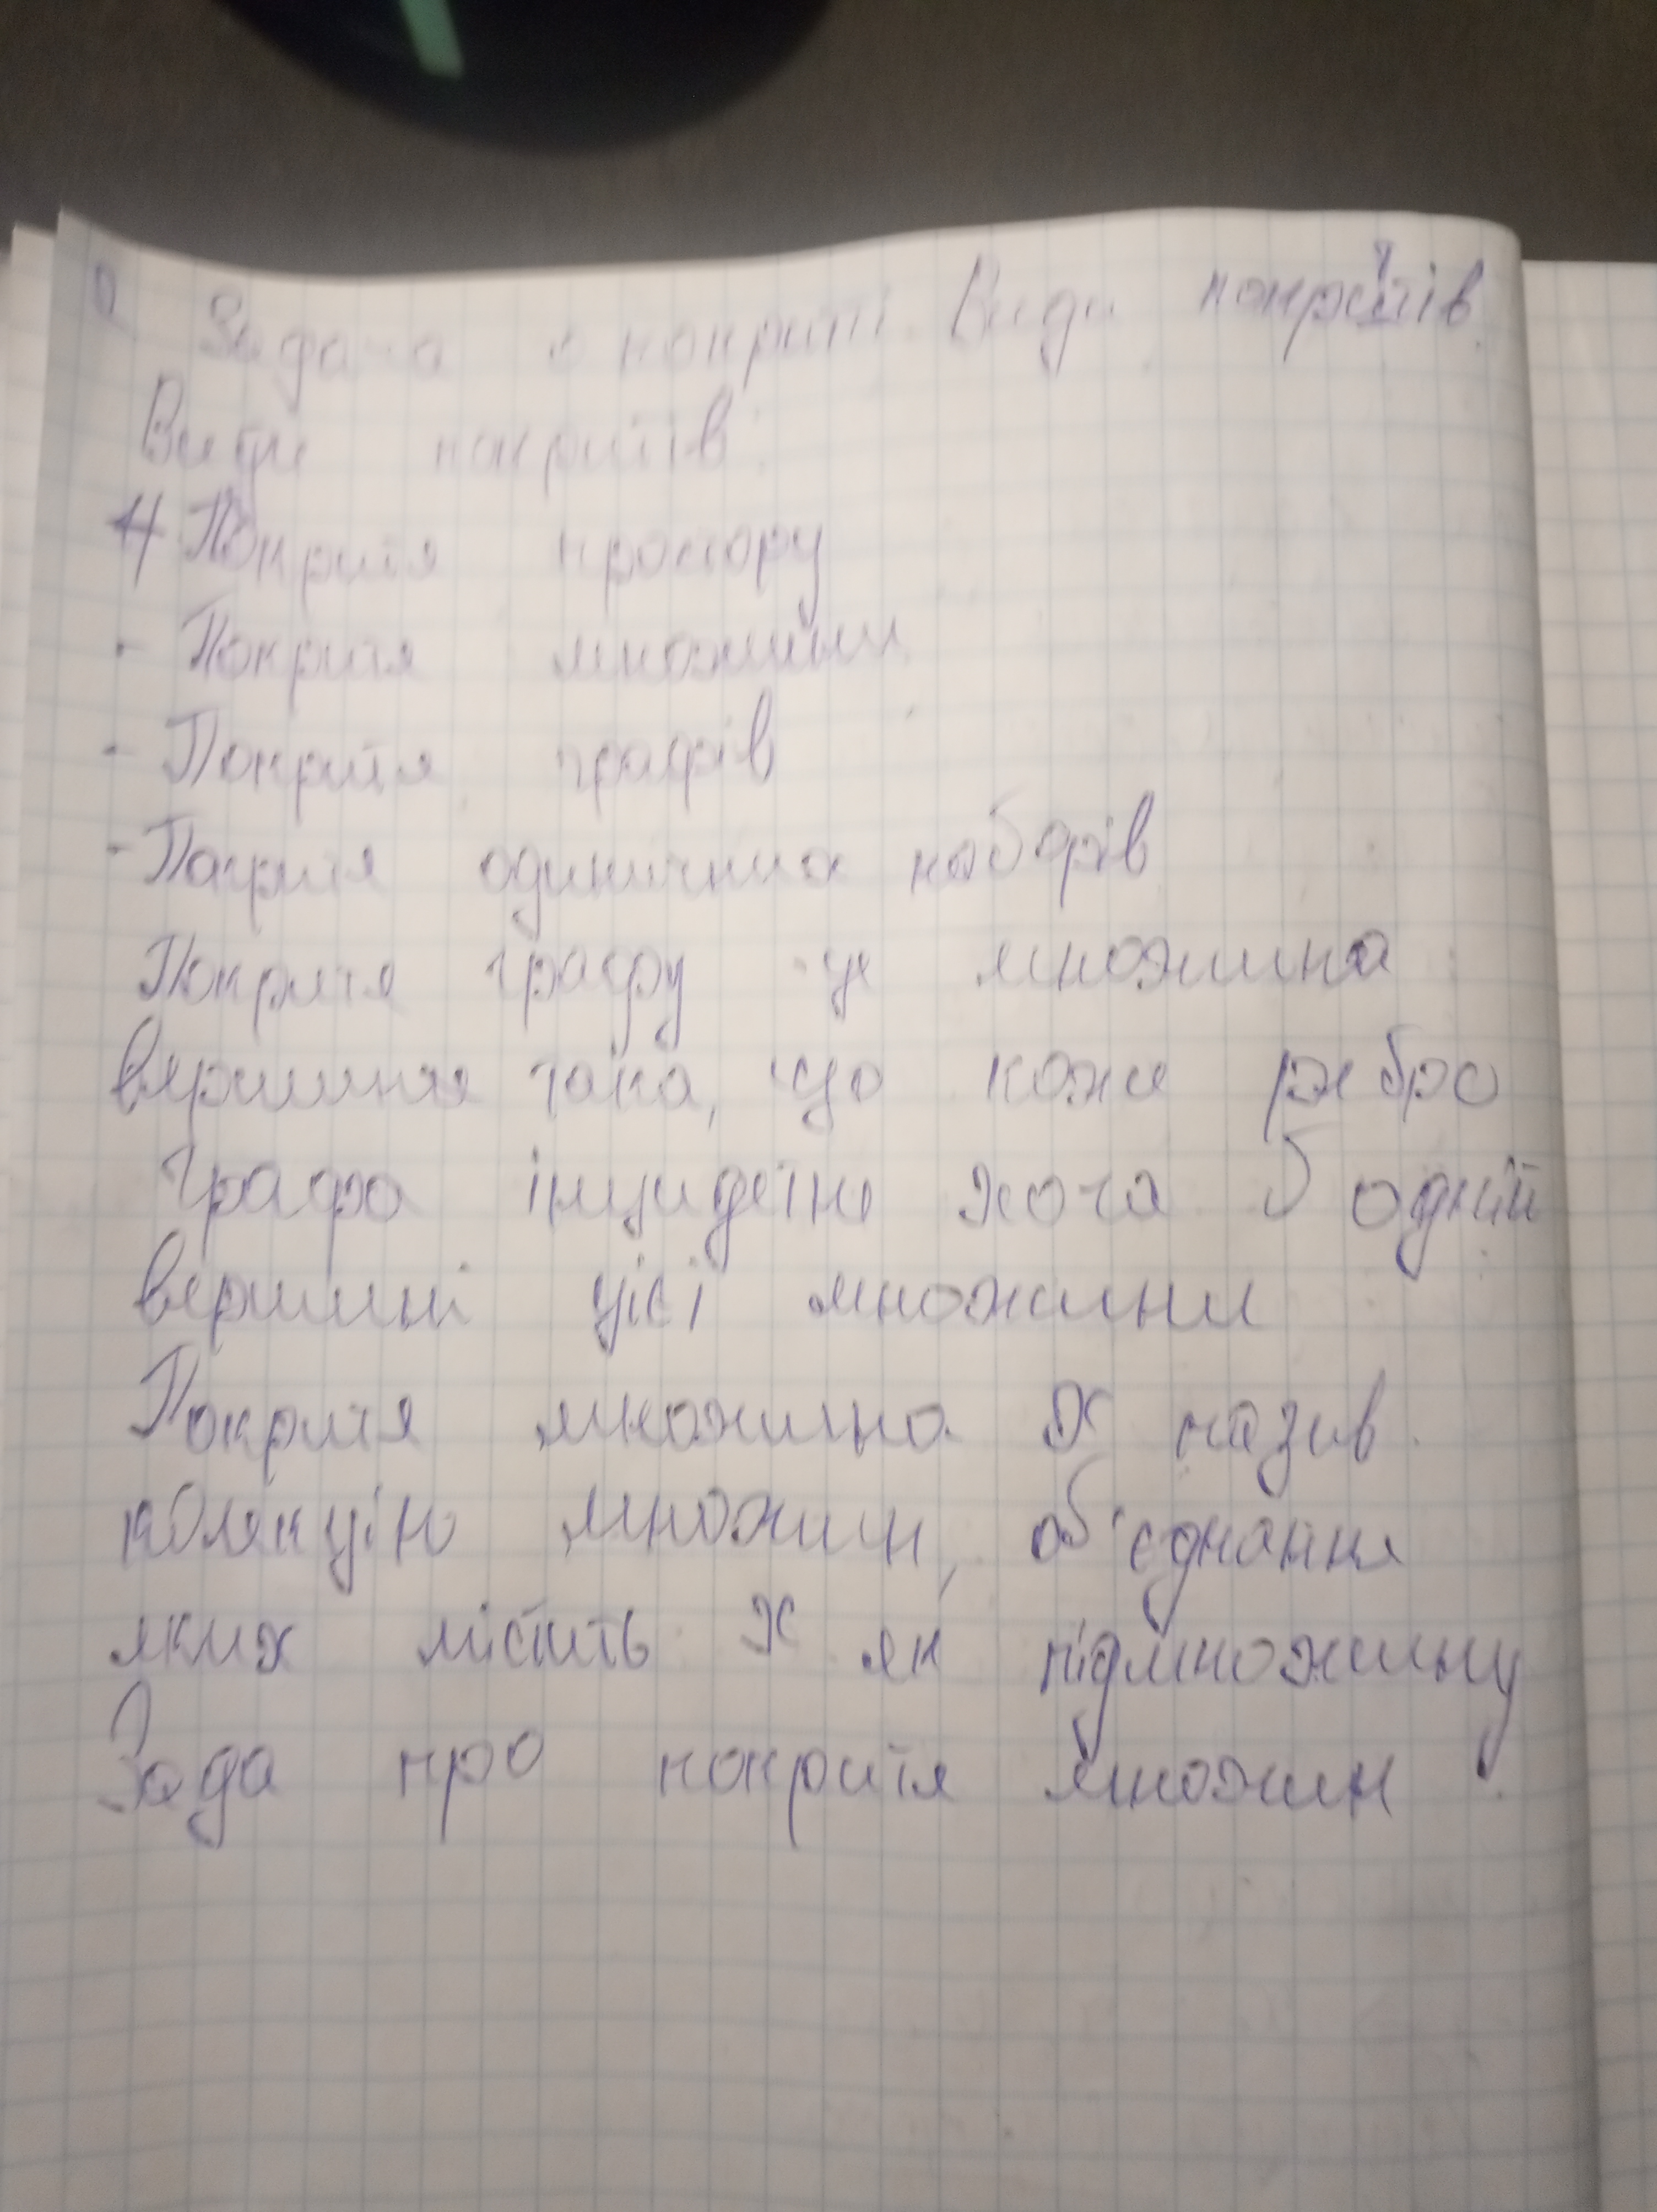 Задача о покриті. Види покриттів.
Види покриттів:
Покриття простору
- Покриття множини
- Покриття графів
- Покриття одиничних наборів
Покриття графу - це множина
вершин така, що кожне ребро
графа інцидетне хоча б одній
вершині цієї множини
Покриття множина X назив.
колекцію множин, об'єднання
яких містить X як підмножину
Зада про покриття множин